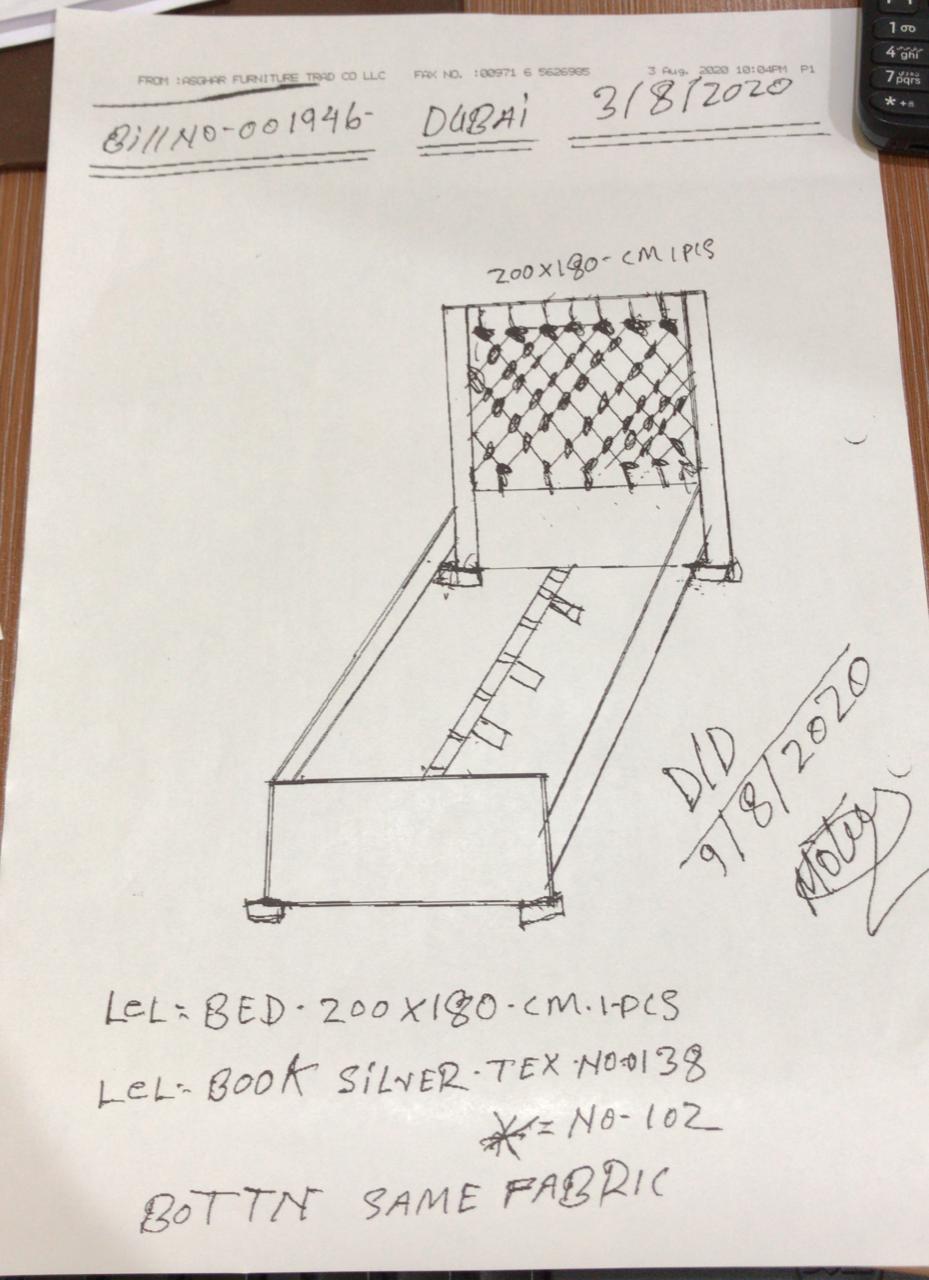 FROM :ASGHAR FURNITURE TRAD CO LLC FAX NO. :00971 6 5626985 3 Aug. 2020 10:04PM P1
Bill NO-001946- DUBAi 3/8/2020
200x180-CM 1PCS
D/D
9/8/2020
LeL= BED. 200X180-CM.1-PCS
LeL= BOOK SiLVER.TEX.NO=0138
= NO-102
BOTTN SAME FABRIC
1
4 ghi
7 pqrs
* +